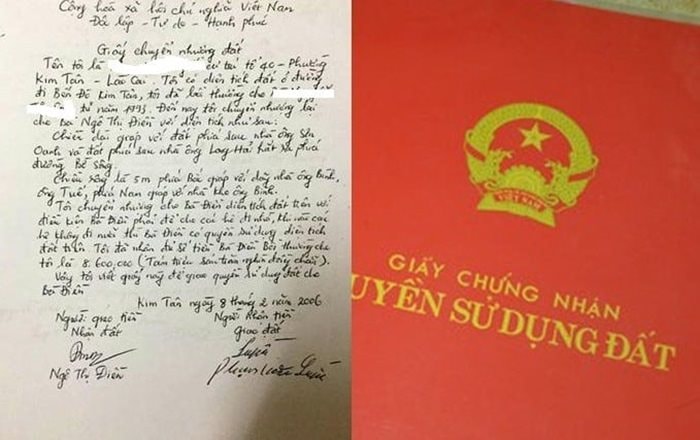 Cộng hòa xã hội chủ nghĩa Việt Nam
Độc lập - Tự do - Hạnh phúc
Giấy chuyển nhượng đất
Tên tôi là cư trú tổ 40 - Phường
Kim Tân - Lào Cai. Tôi có diện tích đất ở đường
đi Bến Đá Kim Tân, tôi đã bồi thường cho
từ năm 1993. Đến nay tôi chuyển nhượng lại
cho Bà Ngô Thị Điền với diện tích như sau:
Chiều dài giáp với đất phía sau nhà ông Sỹ
Oanh và đất phía sau nhà ông Long Hải hết ra phía
đường Bờ sông.
Chiều rộng là 5m phía Bắc giáp với dãy nhà ông Bính,
ông Tuế, phía Nam giáp với nhà kho ông Bính.
Tôi chuyển nhượng cho Bà Điền diện tích đất trên với
điều kiện Bà Điền phải để cho các hộ đi nhờ, khi nào các
hộ không đi nữa thì Bà Điền có quyền sử dụng diện tích
đất trên. Tôi đã nhận đủ số tiền Bà Điền Bồi thường cho
tôi là 8.600.000 (Tám triệu sáu trăm nghìn đồng chẵn).
Vậy tôi viết giấy này để giao quyền sử dụng đất cho
Bà Điền
Kim Tân ngày 8 tháng 2 năm 2006
Người giao tiền Người nhận tiền
Nhận đất Giao đất
Ngô Thị Điền
VIỆT NAM
GIẤY CHỨNG NHẬN
UYỀN SỬ DỤNG ĐẤT